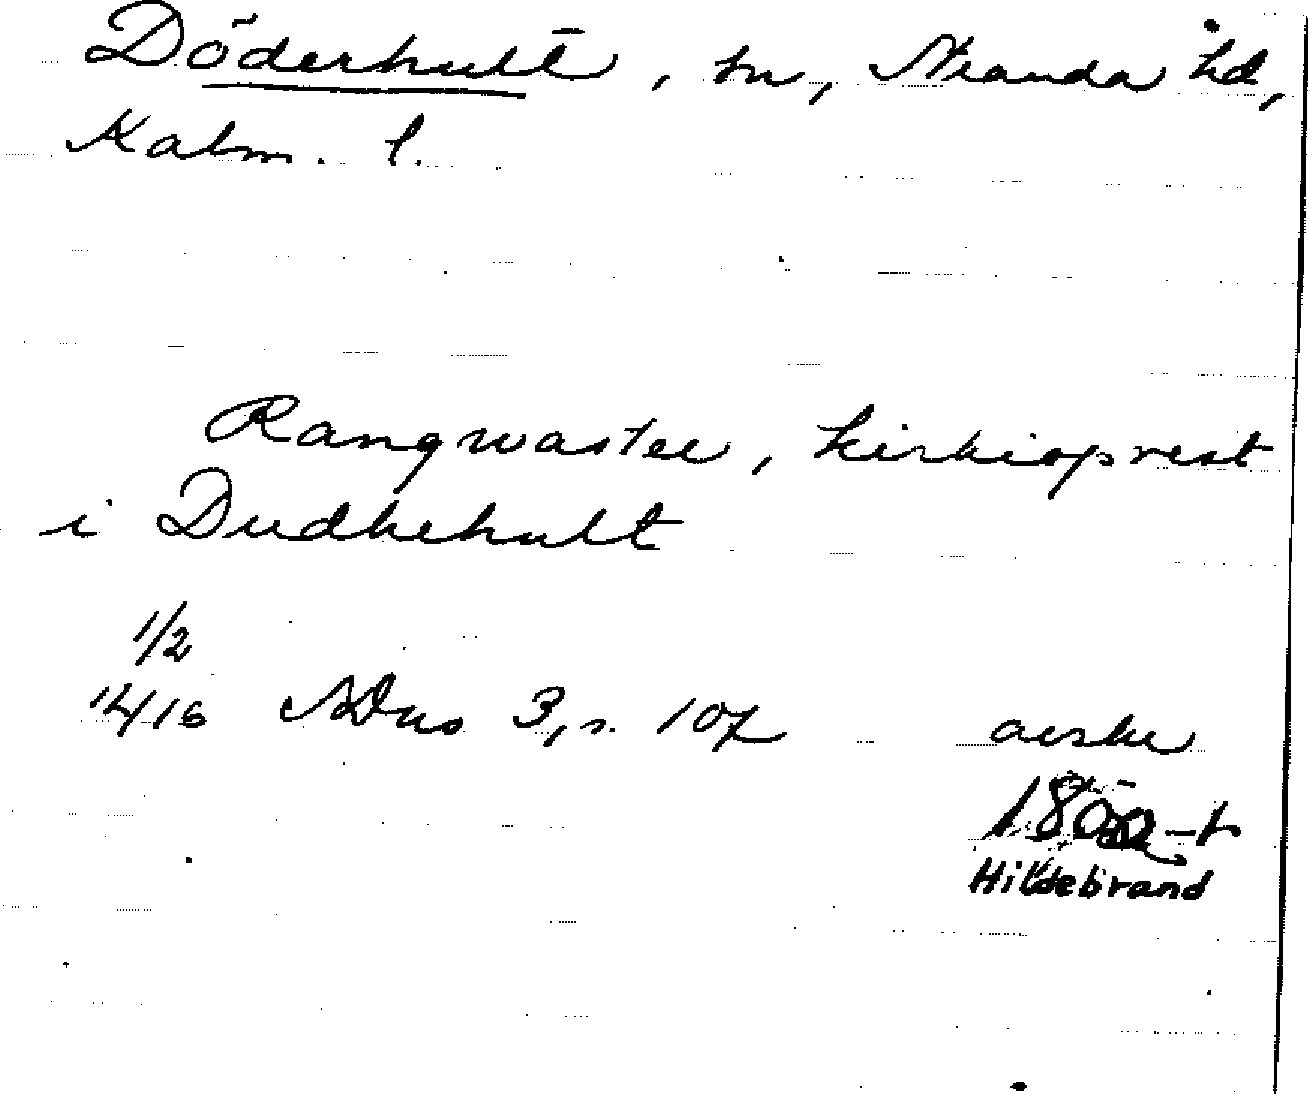 Döderhult, sn, Stranda hd,
Kalm. l.
Rangwastee, kirkioprest
i Dudhehult
1/2
1416 NDns 3, s. 107 avskr
1800-t
Hildebrand